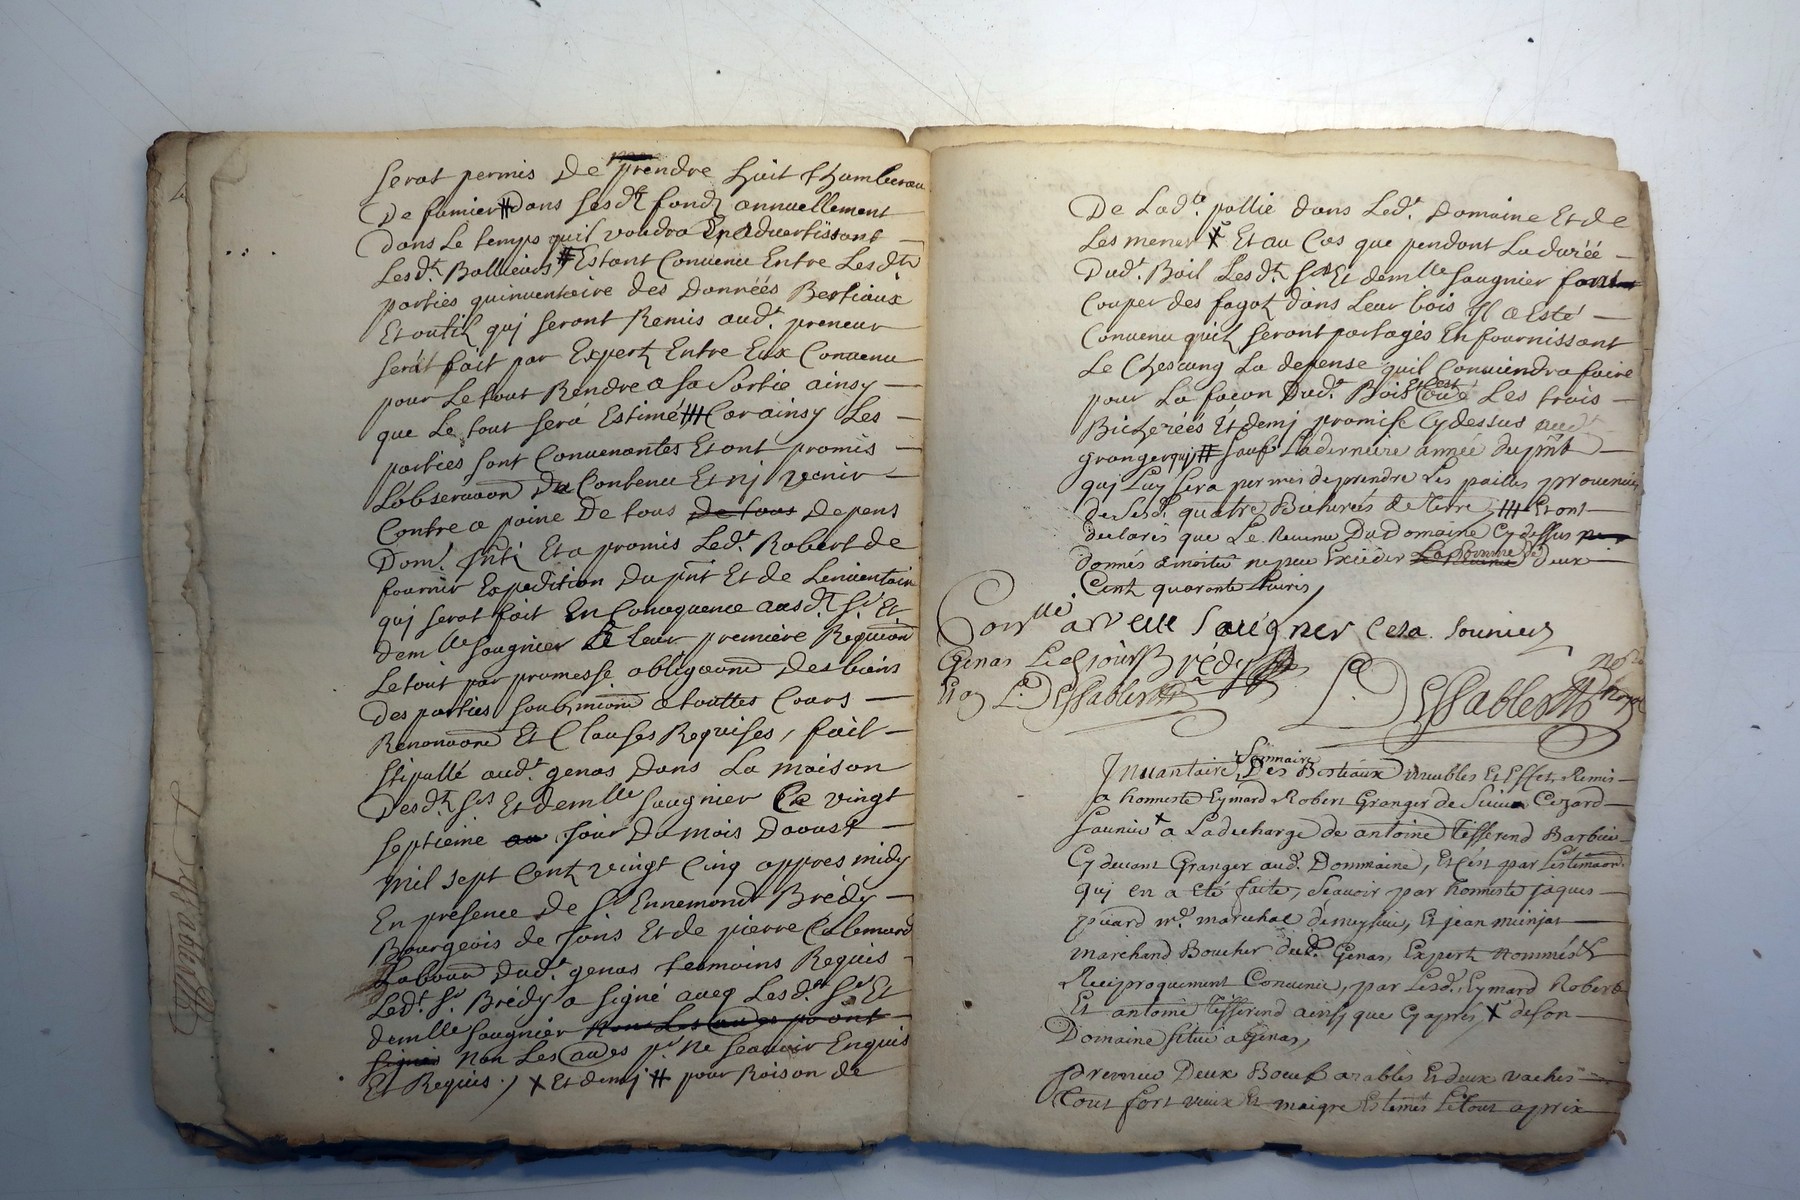 serat permis De prendre huit thumbereau
De fumier # Dans sesd.ts fondz annuellement
Dans Le temps quil voudra En advertissant
Lesd.ts Bailleurs # Estant Convenu Entre Lesd.tes
parties quinventaire des Dannéés Bestiaux
Et outilz quj seront Remis aud.t preneur
serat fait par Expertz Entre Eux Convenu
pour Le tout Rendre a sa Sortie ainsy
que Le tout sera Estimé ## Car ainsy Les
parties sont Convenantes Et ont promis
L'observaõn Du Contenu Et nj venir
Contre a paine De tous de tous Depens
Dom. Intz Et a promis Led.t Robert de
fournir Expedition Du pñt Et de Linventaire
quj serat fait En Consequence ausd.ts Srs Et
demlle Saugnier a Leur premiére Requiõn
Le tout par promesse obligaõns Des biens
Des parties soubmiõns a touttes Cours
Renonciaõns Et Clauses Requises, fait
stipullé aud.t genas Dans La maison
Desd.ts Srs Et demlle Saugnier Ce vingt
septieme au jour Du mois Daoust
Mil sept Centz vingt Cinq appres midy
En présence de Sr Ennemond Brédy
Bourgeois de Jons Et de pierre Calemard
Laboureur Dud.t genas temoins Requis
Led.t Sr Brédy a signé aveq Lesd.ts Srs Et
demlle Saugnier non Les aũes p ont
signes non Les aũes pr Ne Scavoir Enquis
Et Requis. / X Et demj # pour Raison de
De Lad.te pallie dans Led.t Domaine Et de
Les mener X Et au Cas que pendant La duréé
Dud.t Bail Lesd.ts Srs Et demlle Saugnier font
Couper des fagotz dans Leur bois Il a Esté
Convenu quilz seront partagés En fournissant
Le Chescung La depense quil Conviendra faire
pour La façon Dud.t Bois Et est Les trois
Bicheréés Et demj promise Cy dessus aud.t
granger quj # sauf La derniere année du pñt
quj Luy sera permis de prendre Les pailles provenues
de Sesd. quatre Bicherées de terre ## Et ont
declarés que Le Revenu Du Domaine Cy dessus
donnés a moitié ne peu Excéder La Somme de Deux
Cent quarante Livres /
Saugnier Cesar Sonnier
Genas Brédy
L. DESsables
L. DESsables Nore Royal
Invantaire Sommaire Des Bestiaux Meubles Et Effet Remis
a honneste Eymard Robert Granger de Sieur Cezard
Saunier X a La decharge de antoine Tifferend Barbier
Cy devant Granger aud. Dommaine, Et C'est par L'estimaõn
quj en a été faite, scavoir par honneste jaques
puard m.e marechal de meysieu, Et jean minjat
marchand Boucher dud. Genas, Expertz Nommés Et
Reciproquement Convenu, par Lesd. Eymard Robert
Et antoine Tifferend ainsy que Cy apres, X de son
Domaine situé a Genas,
premier Deux Boeufz arables Et deux vaches
Tout fort vieux Et maigre Estimés Le tout a prix